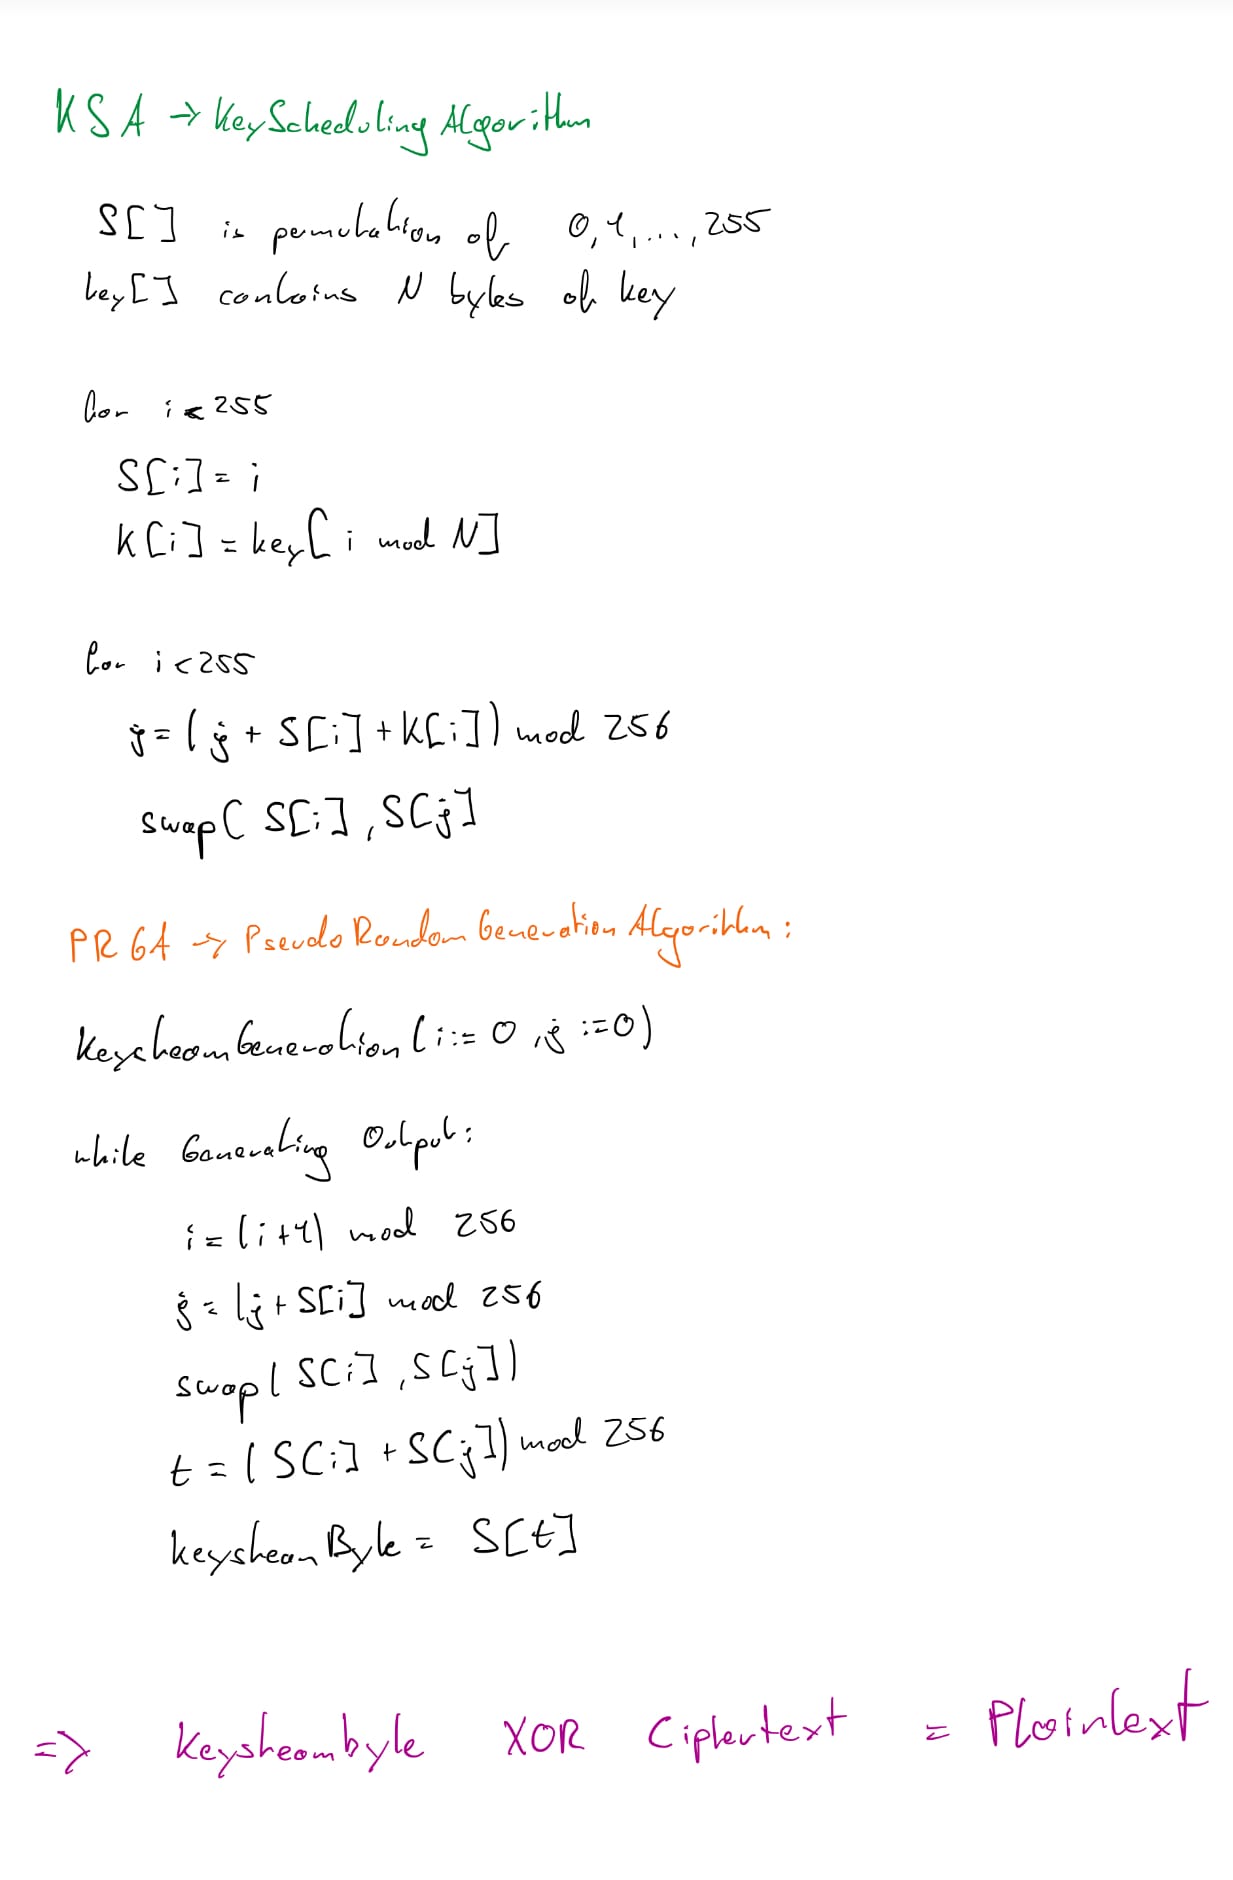 KSA → KeyScheduling Algorithm
S[] is permutation of 0,1,...,255
key[] contains N bytes of key
for i < 255
S[i] = i
K[i] = key[i mod N]
for i < 255
j = (j + S[i] + K[i]) mod 256
swap( S[i], S[j]
PRGA → Pseudo Random Generation Algorithm:
Keystream Generation (i := 0, j := 0)
while Generating Output:
i = (i+1) mod 256
j = (j + S[i] mod 256
swap( S[i], S[j])
t = (S[i] + S[j]) mod 256
keystream Byte = S[t]
=> Keystreambyte XOR Ciphertext = Plaintext